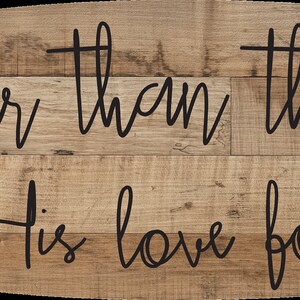 r than th
His love fo